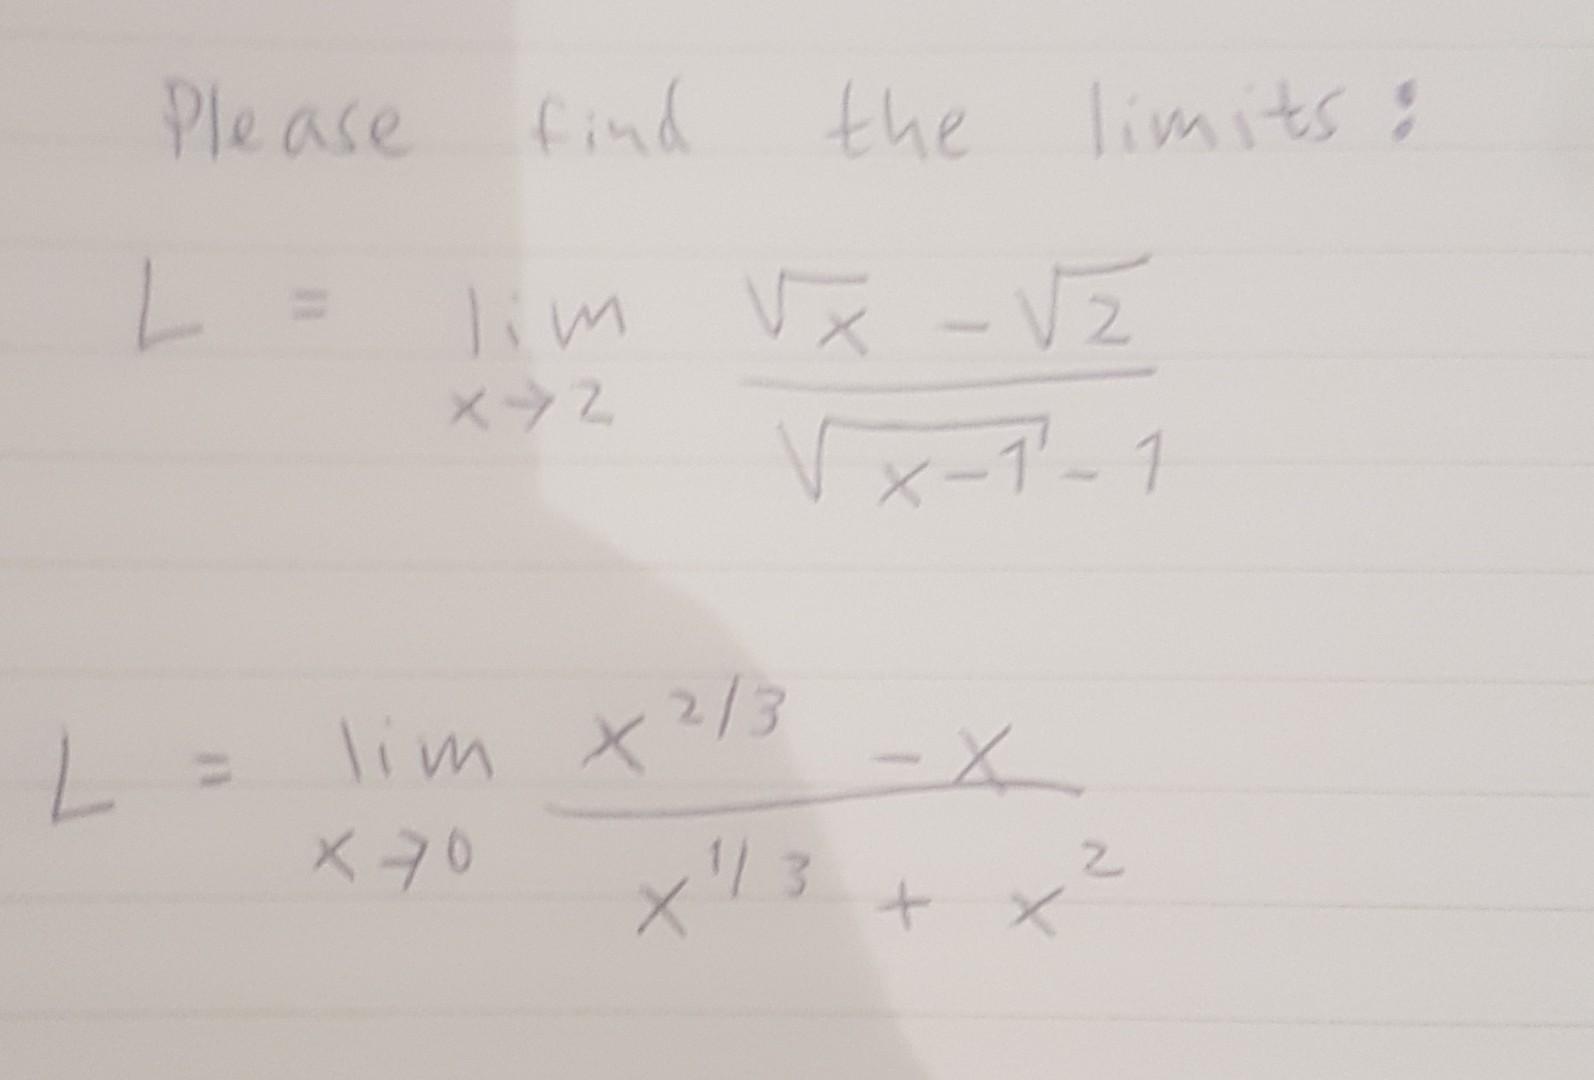 Please find the limits:
L = lim x→2 (√x - √2) / (√(x-1) - 1)
L = lim x→0 (x^(2/3) - x) / (x^(1/3) + x^2)